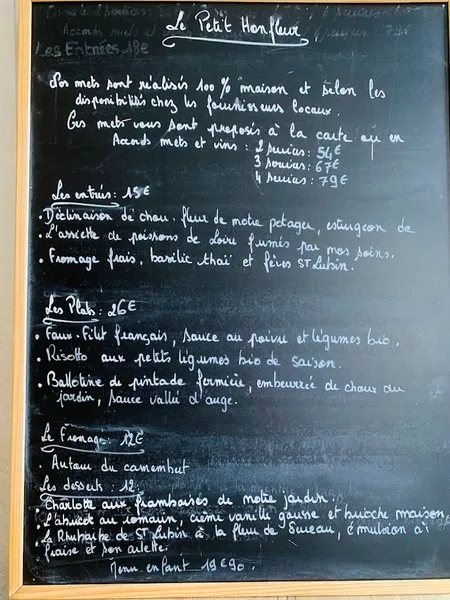 Le Petit Honfleur
Les Entrées 18€
Nos mets sont réalisés 100 % maison et selon les
disponibilités chez les fournisseurs locaux.
Ces mets vous sont proposés à la carte ou en
Accords mets et vins : 2 services : 54€
3 services : 67€
4 services : 79€
Les entrées : 15€
• Déclinaison de chou-fleur de notre potager, esturgeon de
• L'assiette de poissons de Loire fumés par nos soins.
• Fromage frais, basilic thaï et fèves ST Lubin.
Les Plats : 26€
• Faux-Filet français, sauce au poivre et légumes bio.
• Risotto aux petits légumes bio de saison.
• Ballotine de pintade fermière, embeurrée de choux du
jardin, sauce vallée d'auge.
Le Fromage : 12€
• Autour du camembert
Les desserts : 12
• Charlotte aux framboises de notre jardin.
• L'abricot au romarin, crème vanille gousse et brioche maison,
• La Rhubarbe de ST Lubin à la fleur de Sureau, émulsion à
• fraise et son
Menu enfant 19€90.